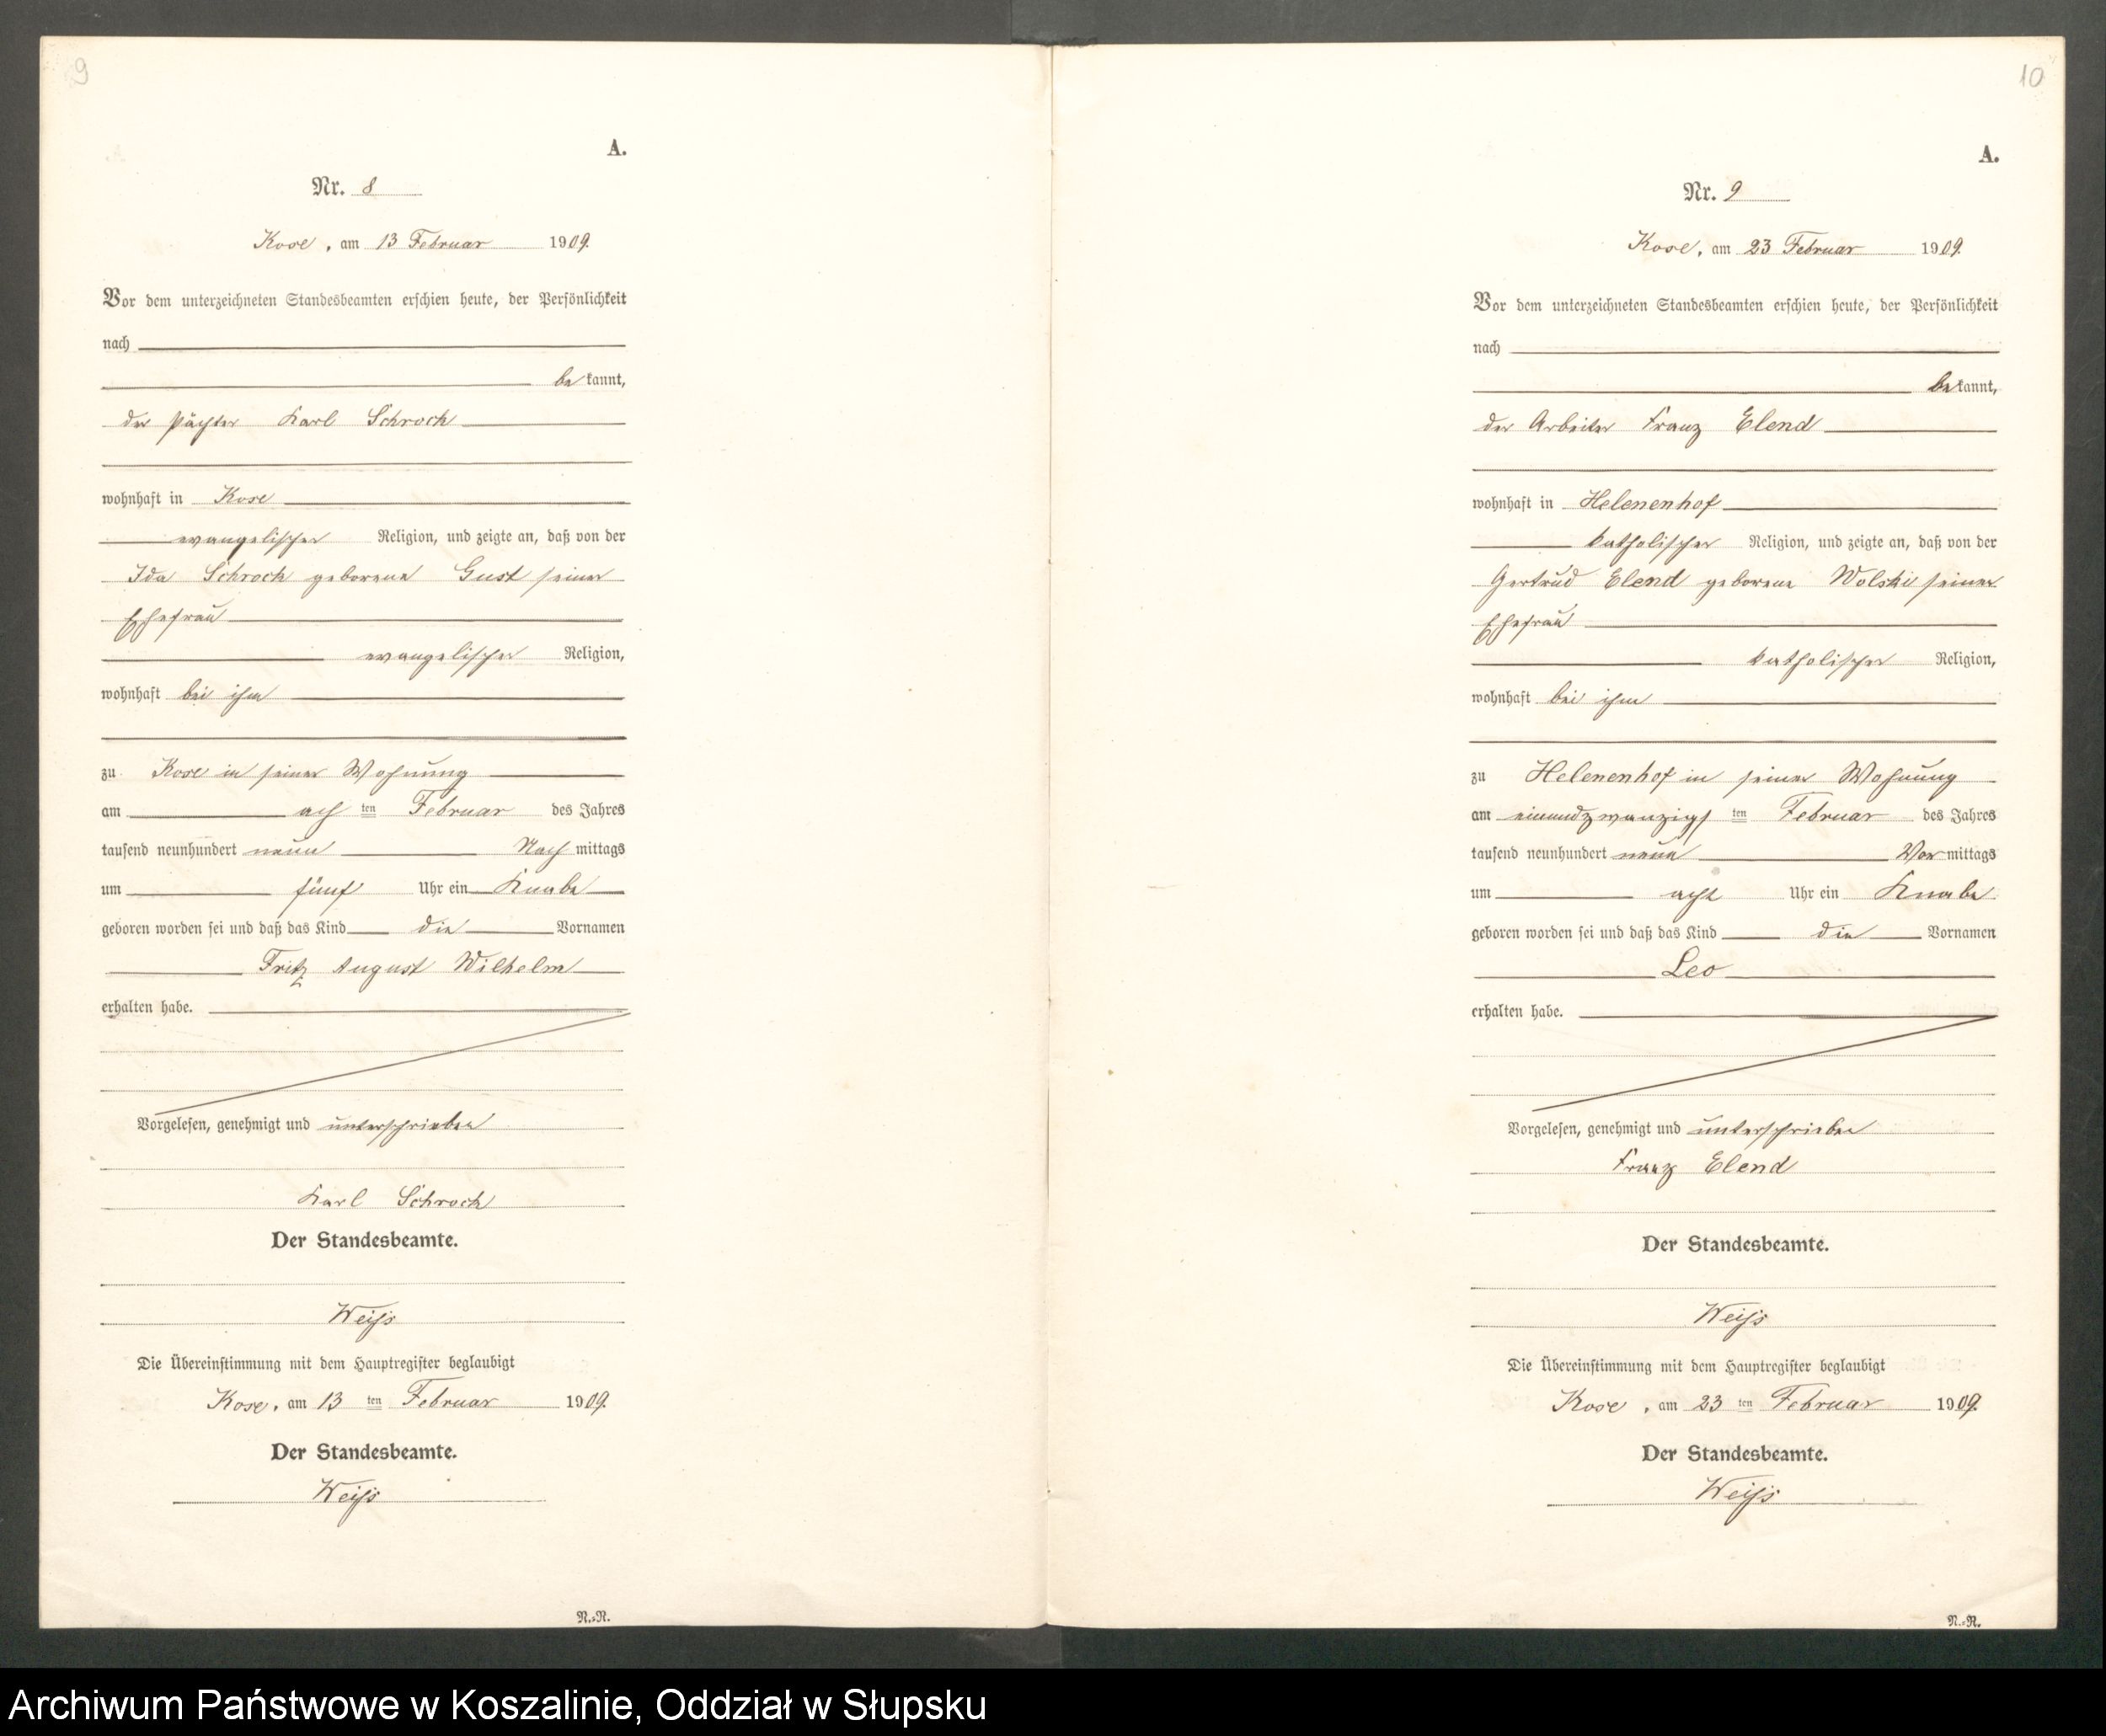 9
A.
Nr. 8
Kose, am 13 Februar 1909.
Vor dem unterzeichneten Standesbeamten erschien heute, der Persönlichkeit
nach
be kannt,
der Pächter Karl Schroch
wohnhaft in Kose
evangelischer Religion, und zeigte an, daß von der
Ida Schroch geborene Gust seiner
Ehefrau
evangelischer Religion,
wohnhaft bei ihm
zu Kose in seiner Wohnung
am ach ten Februar des Jahres
tausend neunhundert neun Nach mittags
um fünf Uhr ein Knabe
geboren worden sei und daß das Kind die Vornamen
Fritz August Wilhelm
erhalten habe.
Vorgelesen, genehmigt und unterschrieben
Karl Schroch
Der Standesbeamte.
Weiss
Die Übereinstimmung mit dem Hauptregister beglaubigt
Kose, am 13 ten Februar 1909.
Der Standesbeamte.
Weiss
N.-R.
10
A.
Nr. 9
Kose, am 23 Februar 1909.
Vor dem unterzeichneten Standesbeamten erschien heute, der Persönlichkeit
nach
be kannt,
der Arbeiter Franz Elend
wohnhaft in Helenenhof
katholischer Religion, und zeigte an, daß von der
Gertrud Elend geborene Wolski seiner
Ehefrau
katholischer Religion,
wohnhaft bei ihm
zu Helenenhof in seiner Wohnung
am einundzwanzigs ten Februar des Jahres
tausend neunhundert neun Vor mittags
um acht Uhr ein Knabe
geboren worden sei und daß das Kind die Vornamen
Leo
erhalten habe.
Vorgelesen, genehmigt und unterschrieben
Franz Elend
Der Standesbeamte.
Weiss
Die Übereinstimmung mit dem Hauptregister beglaubigt
Kose, am 23 ten Februar 1909.
Der Standesbeamte.
Weiss
N.-R.
Archiwum Państwowe w Koszalinie, Oddział w Słupsku